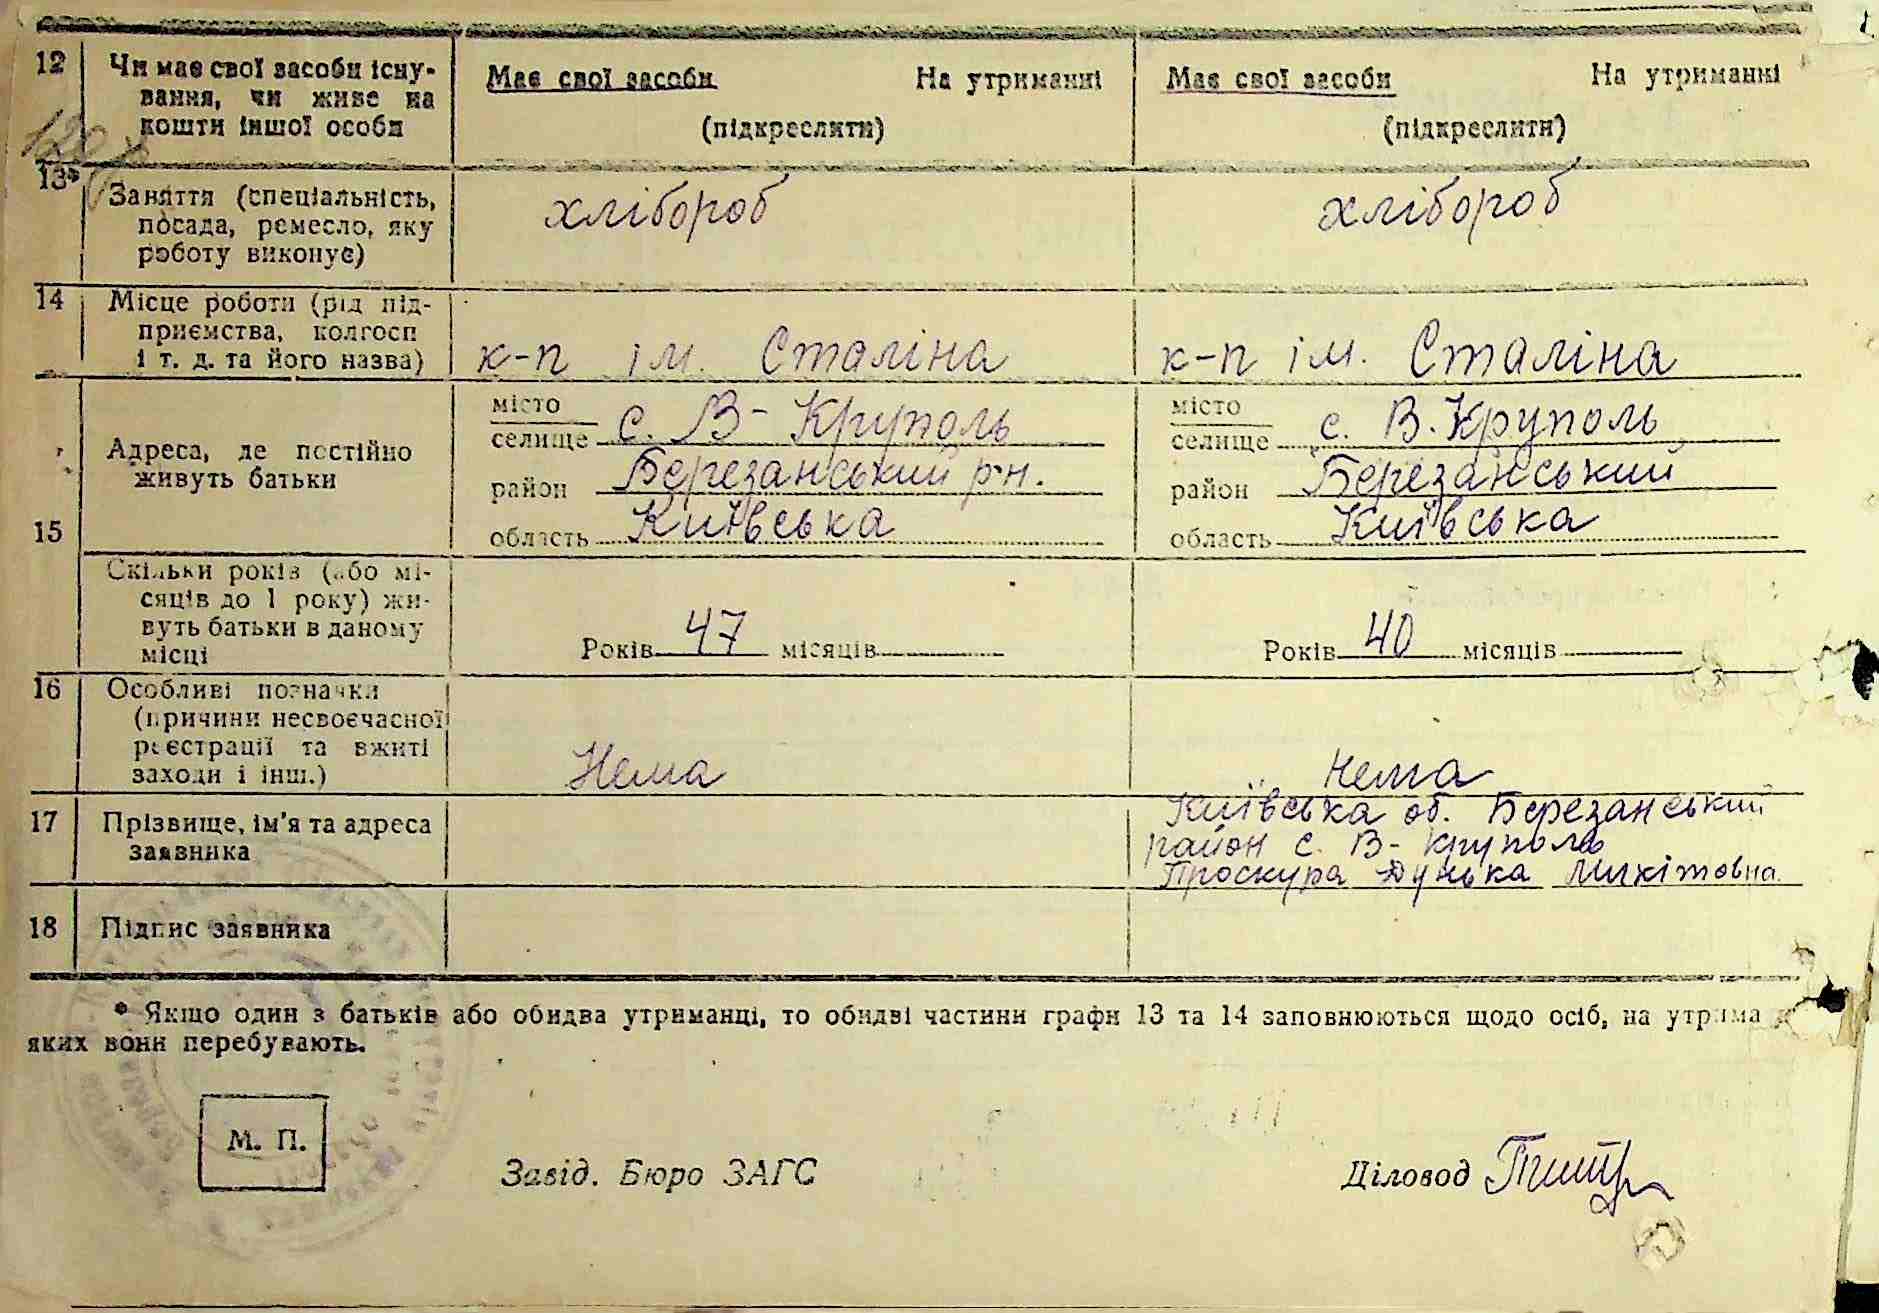 12 Чи має свої засоби існу- Має свої засоби На утриманні Має свої засоби На утриманні
вання, чи живе на
кошти іншої особи (підкреслити) (підкреслити)
13* Заняття (спеціальність, хлібороб хлібороб
посада, ремесло, яку
роботу виконує)
14 Місце роботи (рід під-
приємства, колгосп
і т. д. та його назва) к-п ім. Сталіна к-п ім. Сталіна
15 Адреса, де постійно
живуть батьки
місто
селище с. В- Круполь
район Березанський р-н.
область Київська
місто
селище с. В. Круполь
район Березанський
область Київська
Скільки років (або мі-
сяців до 1 року) жи-
вуть батьки в даному
місці
Років 47 місяців Років 40 місяців
16 Особливі позначки
(причини несвоєчасної
реєстрації та вжиті
заходи і інш.) Нема Нема
17 Прізвище, ім'я та адреса
заявника
Київська об. Березанський
район с. В- Круполь
Проскура Дунька Микітовна
18 Підпис заявника
* Якщо один з батьків або обидва утриманці, то обидві частини графи 13 та 14 заповнюються щодо осіб, на
яких вони перебувають.
М. П.
Завід. Бюро ЗАГС Діловод